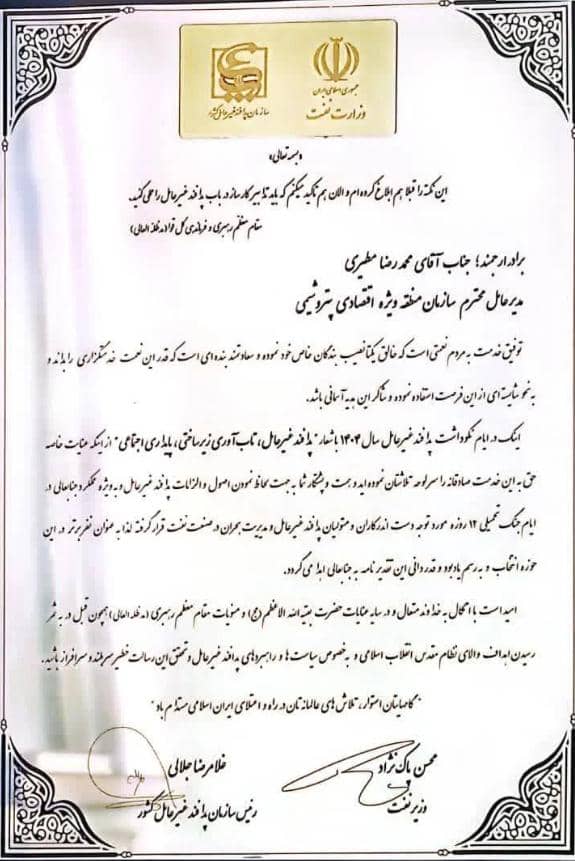 جمهوری اسلامی ایران
وزارت نفت
سازمان پدافند غیرعامل کشور
«بسمه تعالی»
این نکته را قبلا هم ابلاغ کرده ام و الان هم تاکید میکنم که باید تدابیر کارساز در باب پدافند غیرعامل را طی کنید.
مقام معظم رهبری و فرماندهی کل قوا (مدظله العالی)
برادر ارجمند؛ جناب آقای محمدرضا مطیری
مدیرعامل محترم سازمان منطقه ویژه اقتصادی پتروشیمی
توفیق خدمت به مردم نعمتی است که خالق یکتا نصیب بندگان خاص خود نموده و سعادتمند بنده ای است که قدر این نعمت خدمتگزاری را بداند و
به نحو شایسته ای از این فرصت استفاده نموده و شاکر این هدیه آسمانی باشد.
اینک در ایام نکوداشت پدافند غیرعامل سال ۱۴۰۴ با شعار "پدافند غیرعامل، تاب آوری زیرساختی، پایداری اجتماعی" از اینکه عنایت خاصه
حق به این خدمت صادقانه را سرلوحه تلاشتان نموده اید و همت و پشتکار شما به جهت لحاظ نمودن اصول و الزامات پدافند غیرعامل و به ویژه عملکرد جنابعالی در
ایام جنگ تحمیلی ۱۲ روزه مورد توجه دست اندرکاران و متولیان پدافند غیرعامل و مدیریت بحران در صنعت نفت قرار گرفته لذا به عنوان نفر برتر در این
حوزه انتخاب و به رسم یادبود و قدردانی این تقدیرنامه به جنابعالی اهدا می گردد.
امید است با اتکال به خداوند متعال و در سایه عنایات حضرت بقیه الله الاعظم (عج) و منویات مقام معظم رهبری (مدظله العالی) همچون قبل در به ثمر
رسیدن اهداف والای نظام مقدس انقلاب اسلامی و به خصوص سیاست ها و راهبردهای پدافند غیرعامل و تحقق این رسالت خطیر سربلند و سرافراز باشید.
"گامهایتان استوار، تلاش های عالمانه تان در راه و اعتلای ایران اسلامی مستدام باد"
محسن پاک نژاد
وزیر نفت
غلامرضا جلالی
رئیس سازمان پدافند غیرعامل کشور